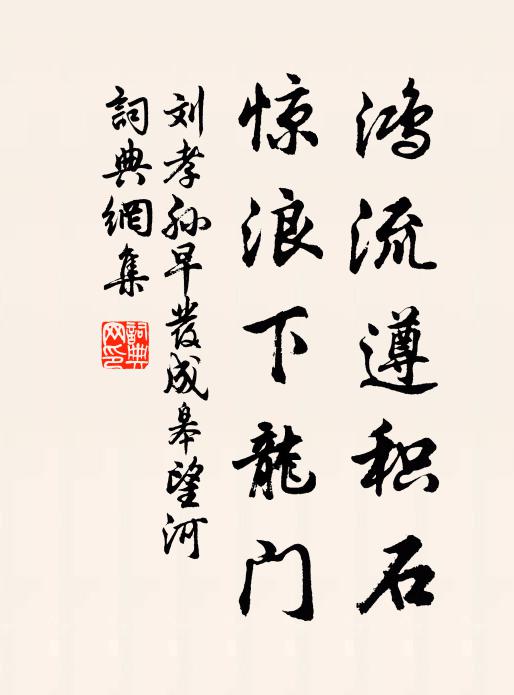 鸿流遵积石
惊浪下龍门
刘孝孙早發成皋望河
詞典網集
詞典网印